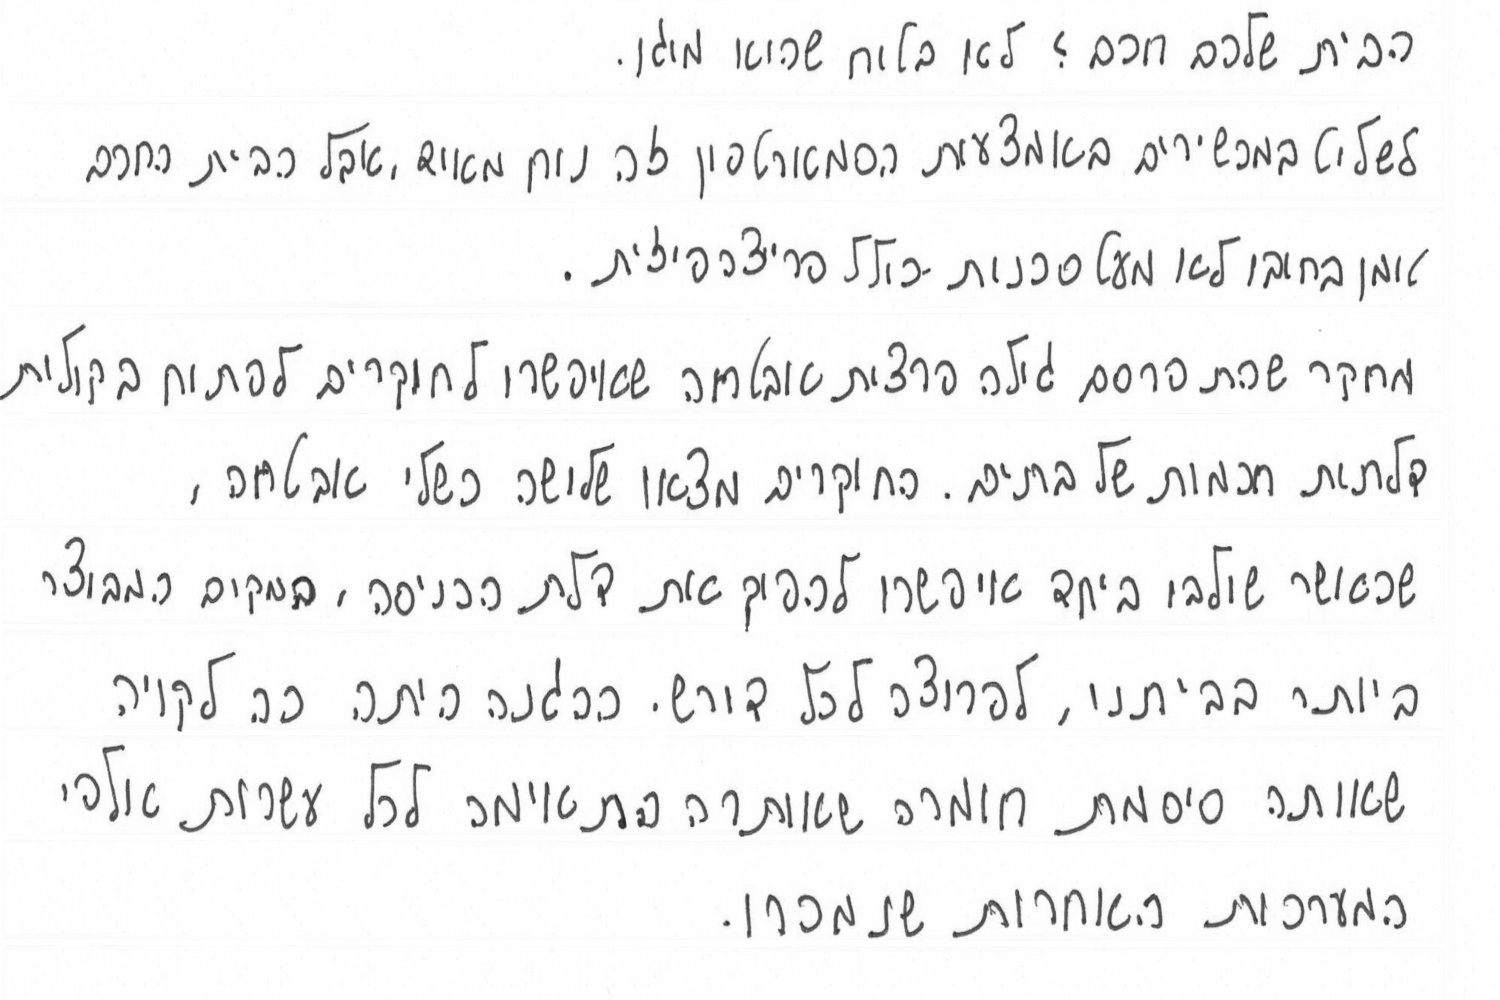 הבית שלכם חכם? לא בטוח שהוא מוגן.
לשלוט במכשירים באמצעות הסמארטפון זה נוח מאוד, אבל הבית החכם
טומן בחובו לא מעט סכנות כולל פריצה פיזית.
מחקר שהתפרסם גילה פרצות אבטחה שאיפשרו לחוקרים לפתוח בקולות
דלתות חכמות של בתים. החוקרים מצאו שלושה כשלי אבטחה,
שכאשר שולבו ביחד איפשרו להפוך את דלת הכניסה, במקום המבוצר
ביותר בביתנו, לפרוצה לכל דורש. ההגנה היתה כה לקויה
שאותה סיסמת חומרה שאותרה התאימה לכל עשרות אלפי
המערכות האחרות שנמכרו.